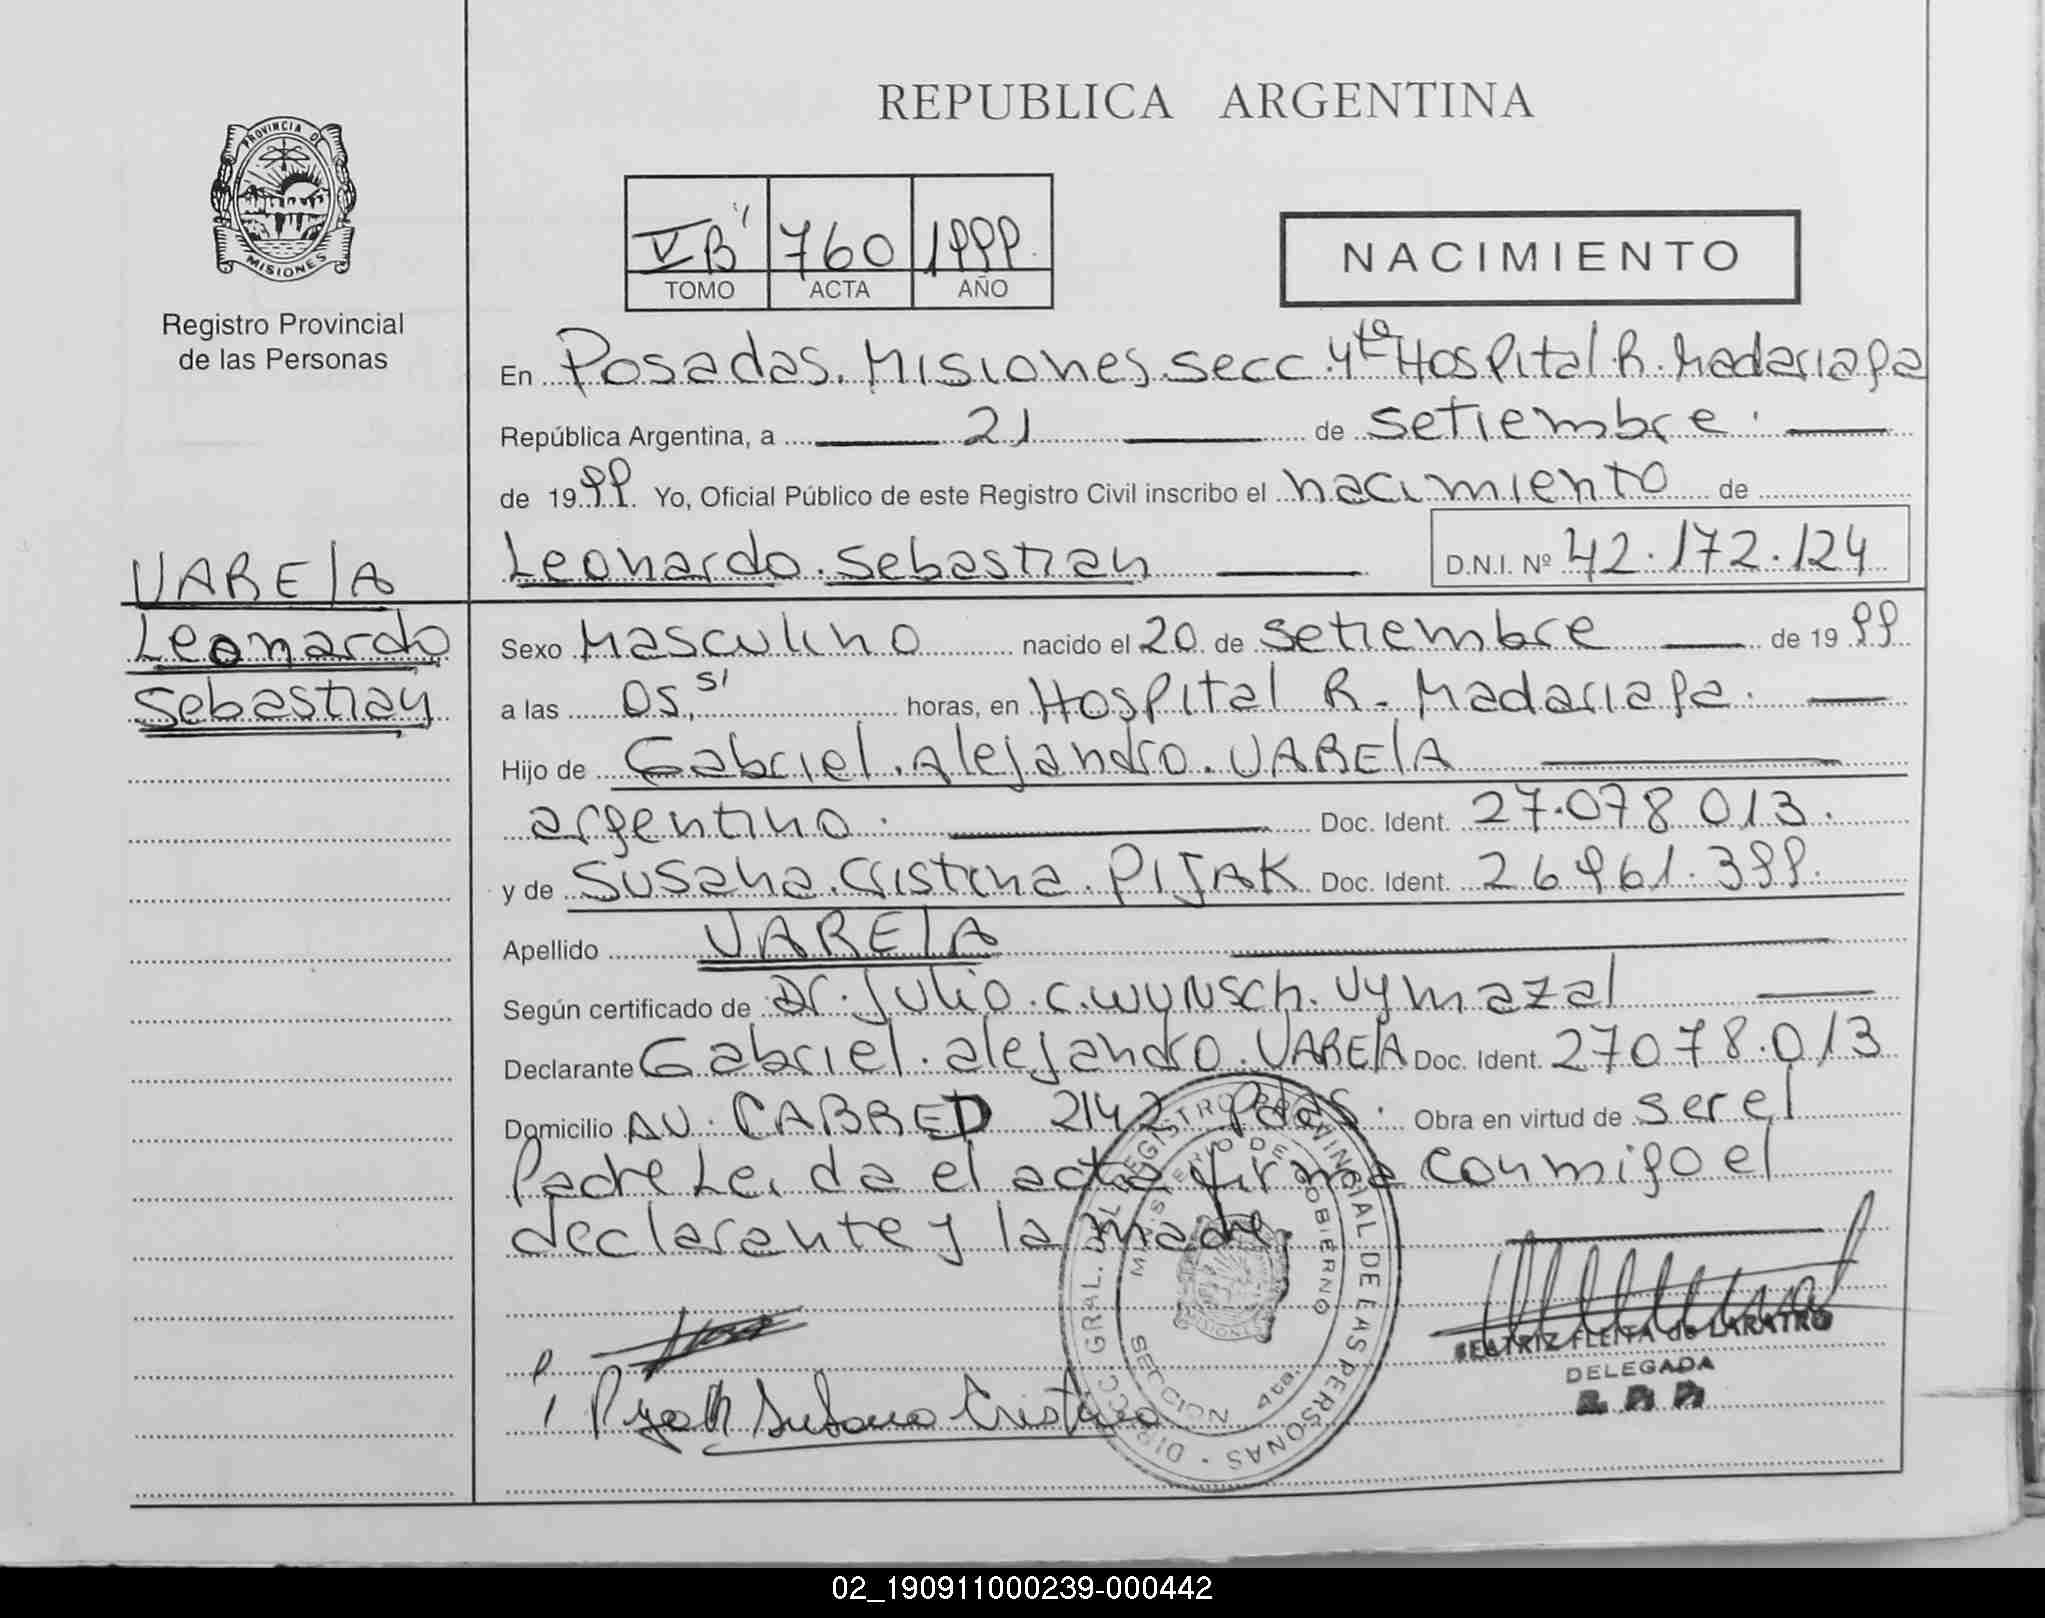 REPUBLICA ARGENTINA
PROVINCIA DE
MISIONES
Registro Provincial
de las Personas
VB" 760 1999.
TOMO ACTA AÑO
NACIMIENTO
En Posadas. Misiones. secc. 4ta Hospital R. Madariaga
República Argentina, a 21 de setiembre.
de 1999. Yo, Oficial Público de este Registro Civil inscribo el nacimiento de
Leonardo. Sebastian D.N.I. Nº 42.172.124
VARElA
Leonardo
Sebastian
Sexo Masculino nacido el 20 de Setiembre de 1999
a las 05, horas, en Hospital R. Madariaga.
Hijo de Gabriel. Alejandro. VARElA
argentino. Doc. Ident. 27.078 013.
y de Susana. Cristina. PIJAK Doc. Ident. 26961.399.
Apellido VARElA
Según certificado de Dr. Julio. C. WUNSch. Vymazal
Declarante Gabriel. alejandro. VARElA Doc. Ident. 27078.013
Domicilio AV. CABRED 2142 Pdas. Obra en virtud de ser el
Padre Lei da el acta firma conmigo el
declarante y la madre.
DIRECC. GRAL. DEL REGISTRO PROVINCIAL DE LAS PERSONAS
MINISTERIO DE GOBIERNO
MISIONES
SECCION 4ta.
Pijak Susana Cristina
BEATRIZ FLEITA de LARATRO
DELEGADA
02_190911000239-000442